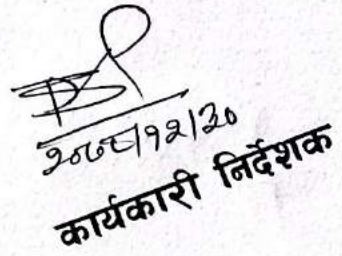 २०७९/१२/३०
कार्यकारी निर्देशक